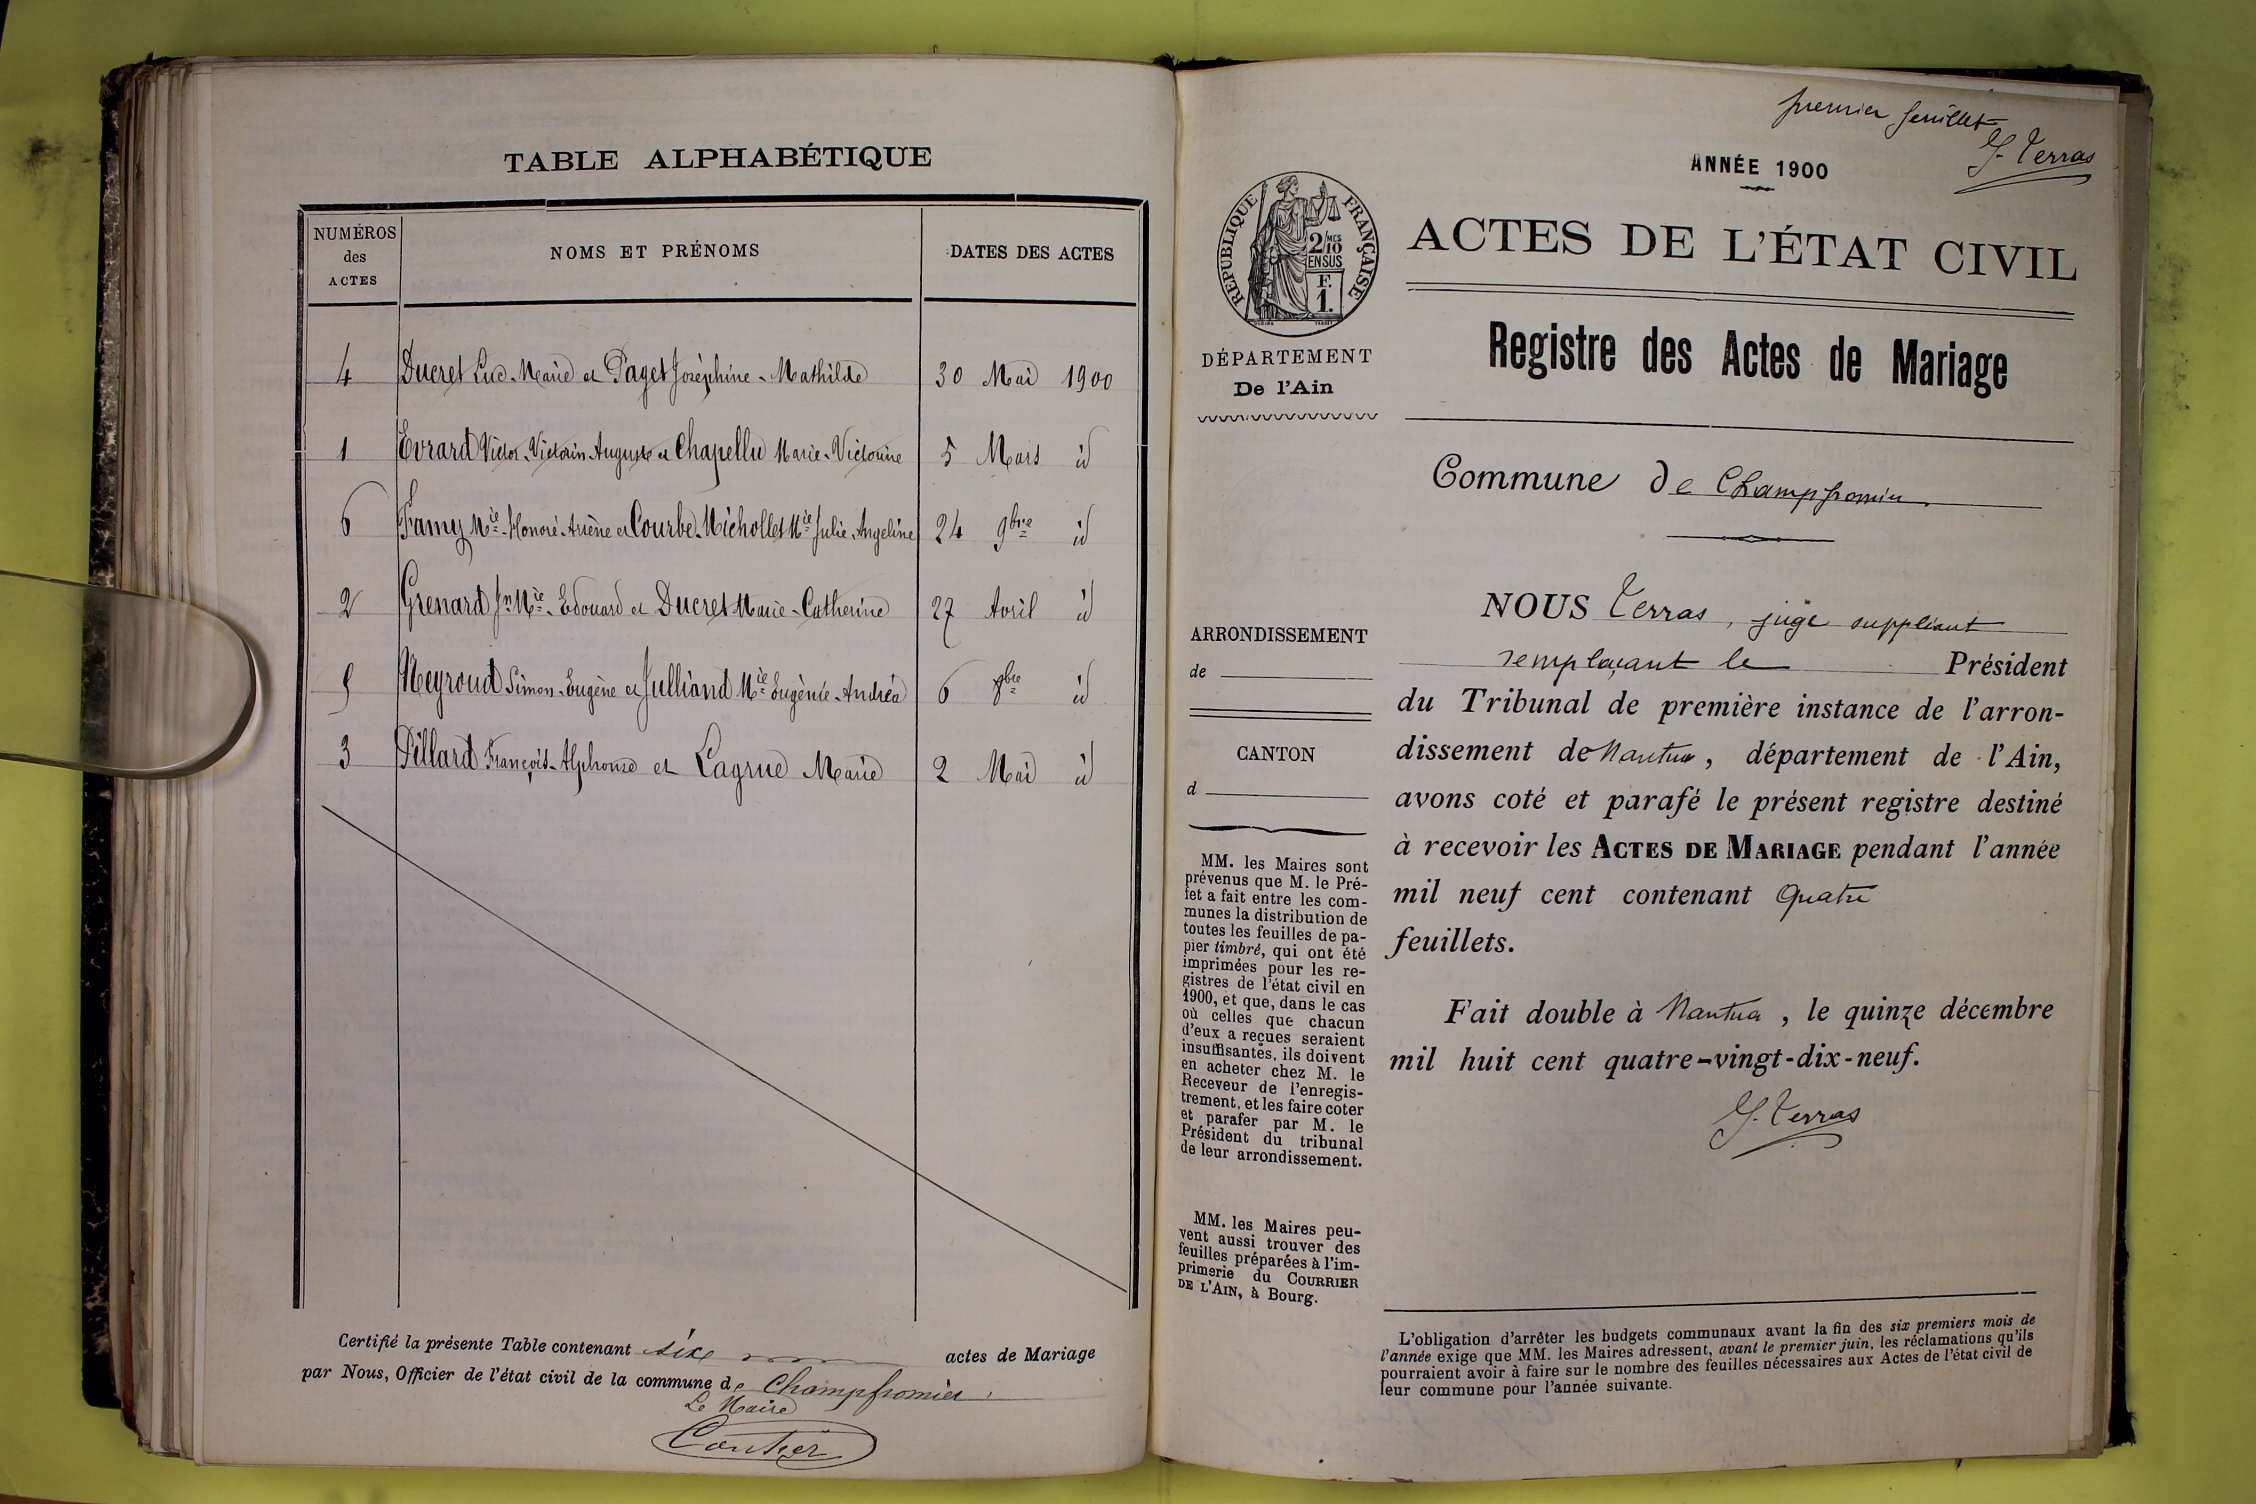 TABLE ALPHABÉTIQUE
NUMÉROS des ACTES
NOMS ET PRÉNOMS
DATES DES ACTES
4 Ducret Luc-Marie et Paget Joséphine-Mathilde 30 Mai 1900
1 Evrard Victor-Victorin-Auguste et Chapellu Marie-Victorine 5 Mars id
6 Famy Mie-Honoré-Arsène et Courbe-Michollet Mie Julie-Angeline 24 9bre id
2 Grenard Jn Mie-Edouard et Ducret Marie-Catherine 27 Avril id
5 Meyroud Simon-Eugène et Julliand Mie Eugénie-Andréa 6 8bre id
3 Pillard François-Alphonse et Lagrue Marie 2 Mai id
Certifié la présente Table contenant six actes de Mariage
par Nous, Officier de l'état civil de la commune de Champfromier
Le Maire
Coutier
premier feuillet
G. Terras
ANNÉE 1900
RÉPUBLIQUE FRANÇAISE
2/10
EN SUS
F.
1.
ACTES DE L'ÉTAT CIVIL
DÉPARTEMENT
De l'Ain
Registre des Actes de Mariage
Commune de Champfromier
ARRONDISSEMENT
de
CANTON
d
MM. les Maires sont
prévenus que M. le Pré-
fet a fait entre les com-
munes la distribution de
toutes les feuilles de pa-
pier timbré, qui ont été
imprimées pour les re-
gistres de l'état civil en
1900, et que, dans le cas
où celles que chacun
d'eux a reçues seraient
insuffisantes, ils doivent
en acheter chez M. le
Receveur de l'enregis-
trement, et les faire coter
et parafer par M. le
Président du tribunal
de leur arrondissement.
MM. les Maires peu-
vent aussi trouver des
feuilles préparées à l'im-
primerie du COURRIER
DE L'AIN, à Bourg.
NOUS Terras, juge suppléant
remplaçant le Président
du Tribunal de première instance de l'arron-
dissement de Nantua, département de l'Ain,
avons coté et parafé le présent registre destiné
à recevoir les ACTES DE MARIAGE pendant l'année
mil neuf cent contenant quatre
feuillets.
Fait double à Nantua, le quinze décembre
mil huit cent quatre-vingt-dix-neuf.
G. Terras
L'obligation d'arrêter les budgets communaux avant la fin des six premiers mois de
l'année exige que MM. les Maires adressent, avant le premier juin, les réclamations qu'ils
pourraient avoir à faire sur le nombre des feuilles nécessaires aux Actes de l'état civil de
leur commune pour l'année suivante.